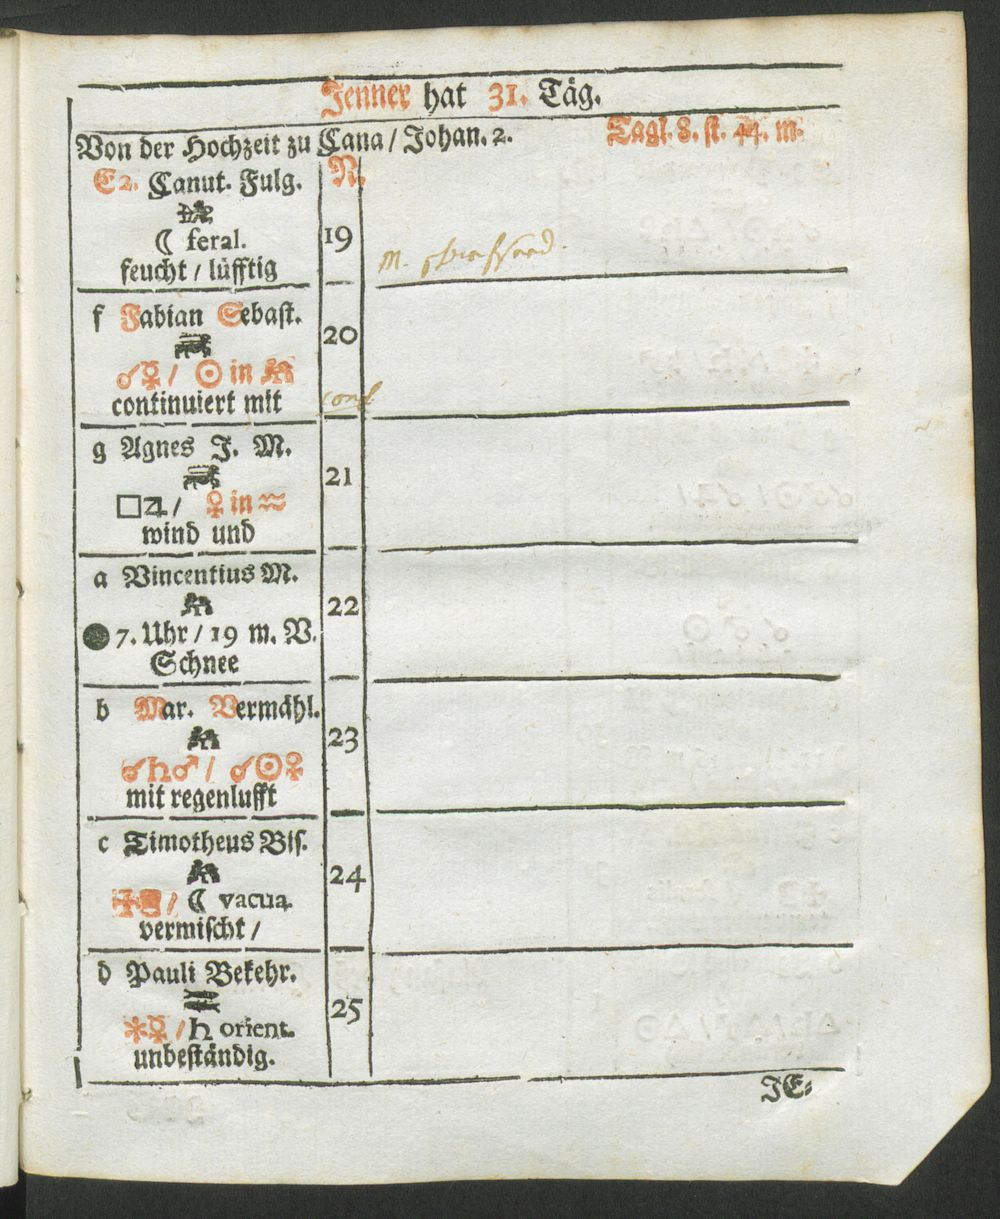 Jenner hat 31. Täg.
Von der Hochzeit zu Cana / Johan. 2.
Tagl. 8. st. 44. m.
E2. Canut. Fulg.
N.
☾ feral.
19
feucht / lüfftig
m.
f Fabian Sebast.
20
☌☿ / ☉ in ♒
continuiert mit
conf
g Agnes J. M.
21
□♃ / ♀ in ♒
wind und
a Vincentius M.
22
● 7. Uhr / 19 m. V.
Schnee
b Mar. Vermähl.
23
☌♄♂ / ☌☉♀
mit regenlufft
c Timotheus Bis.
24
/ ☾ vacua.
vermischt /
d Pauli Bekehr.
♓
25
⚹☿ / ♄ orient.
unbeständig.
JE⸗